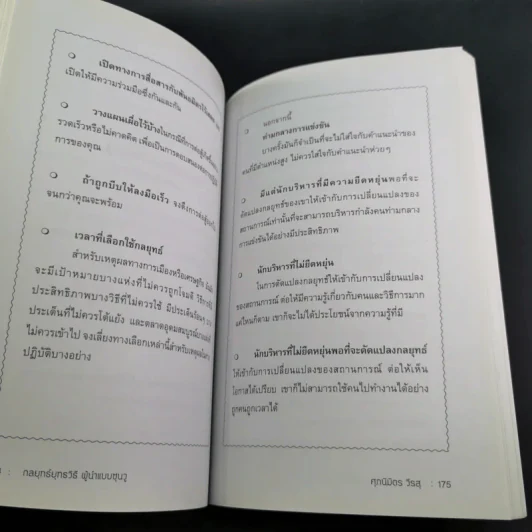 เปิดทางการสื่อสารกับพันธมิตรไว้
เปิดให้มีความร่วมมือซึ่งกันและกัน
วางแผนเผื่อไว้บ้างในกรณีที่
รวดเร็วหรือไม่คาดคิด เพื่อเป็นการตอบสนอง
การของคุณ
ถ้าถูกบีบให้ลงมือเร็ว จงดึงการ
จนกว่าคุณจะพร้อม
เวลาที่เลือกใช้กลยุทธ์
สำหรับเหตุผลทางการเมืองหรือเศรษฐกิจ
จะมีเป้าหมายบางแห่งที่ไม่ควรถูกโจมตี วิธีการที่
ประสิทธิภาพบางวิธีที่ไม่ควรใช้ มีประเด็นร้อนๆ
ประเด็นที่ไม่ควรโต้แย้ง และตลาดอุดมสมบูรณ์บาง
ไม่ควรเข้าไป จงเลี่ยงทางเลือกเหล่านี้สำหรับเหตุผลใน
ปฏิบัติบางอย่าง
: กลยุทธ์ยุทธวิธี ผู้นำแบบซุนวู
นอกจากนี้
ท่ามกลางการแข่งขัน
บางครั้งมันก็จำเป็นที่จะไม่ใส่ใจกับคำแนะนำของ
คนที่มีตำแหน่งสูง ไม่ควรใส่ใจกับคำแนะนำห่วยๆ
มีแต่นักบริหารที่มีความยืดหยุ่นพอที่จะ
ดัดแปลงกลยุทธ์ของเขาให้เข้ากับการเปลี่ยนแปลงของ
สถานการณ์เท่านั้นที่จะสามารถบริหารกำลังคนท่ามกลาง
การแข่งขันได้อย่างมีประสิทธิภาพ
นักบริหารที่ไม่ยืดหยุ่น
ในการดัดแปลงกลยุทธ์ให้เข้ากับการเปลี่ยนแปลง
ของสถานการณ์ ต่อให้มีความรู้เกี่ยวกับคนและวิธีการมาก
แค่ไหนก็ตาม เขาก็จะไม่ได้ประโยชน์จากความรู้ที่มี
นักบริหารที่ไม่ยืดหยุ่นพอที่จะดัดแปลงกลยุทธ์
ให้เข้ากับการเปลี่ยนแปลงของสถานการณ์ ต่อให้เห็น
โอกาสได้เปรียบ เขาก็ไม่สามารถใช้คนไปทำงานได้อย่าง
ถูกคนถูกเวลาได้
ศุภนิมิตร วีรสุ : 175